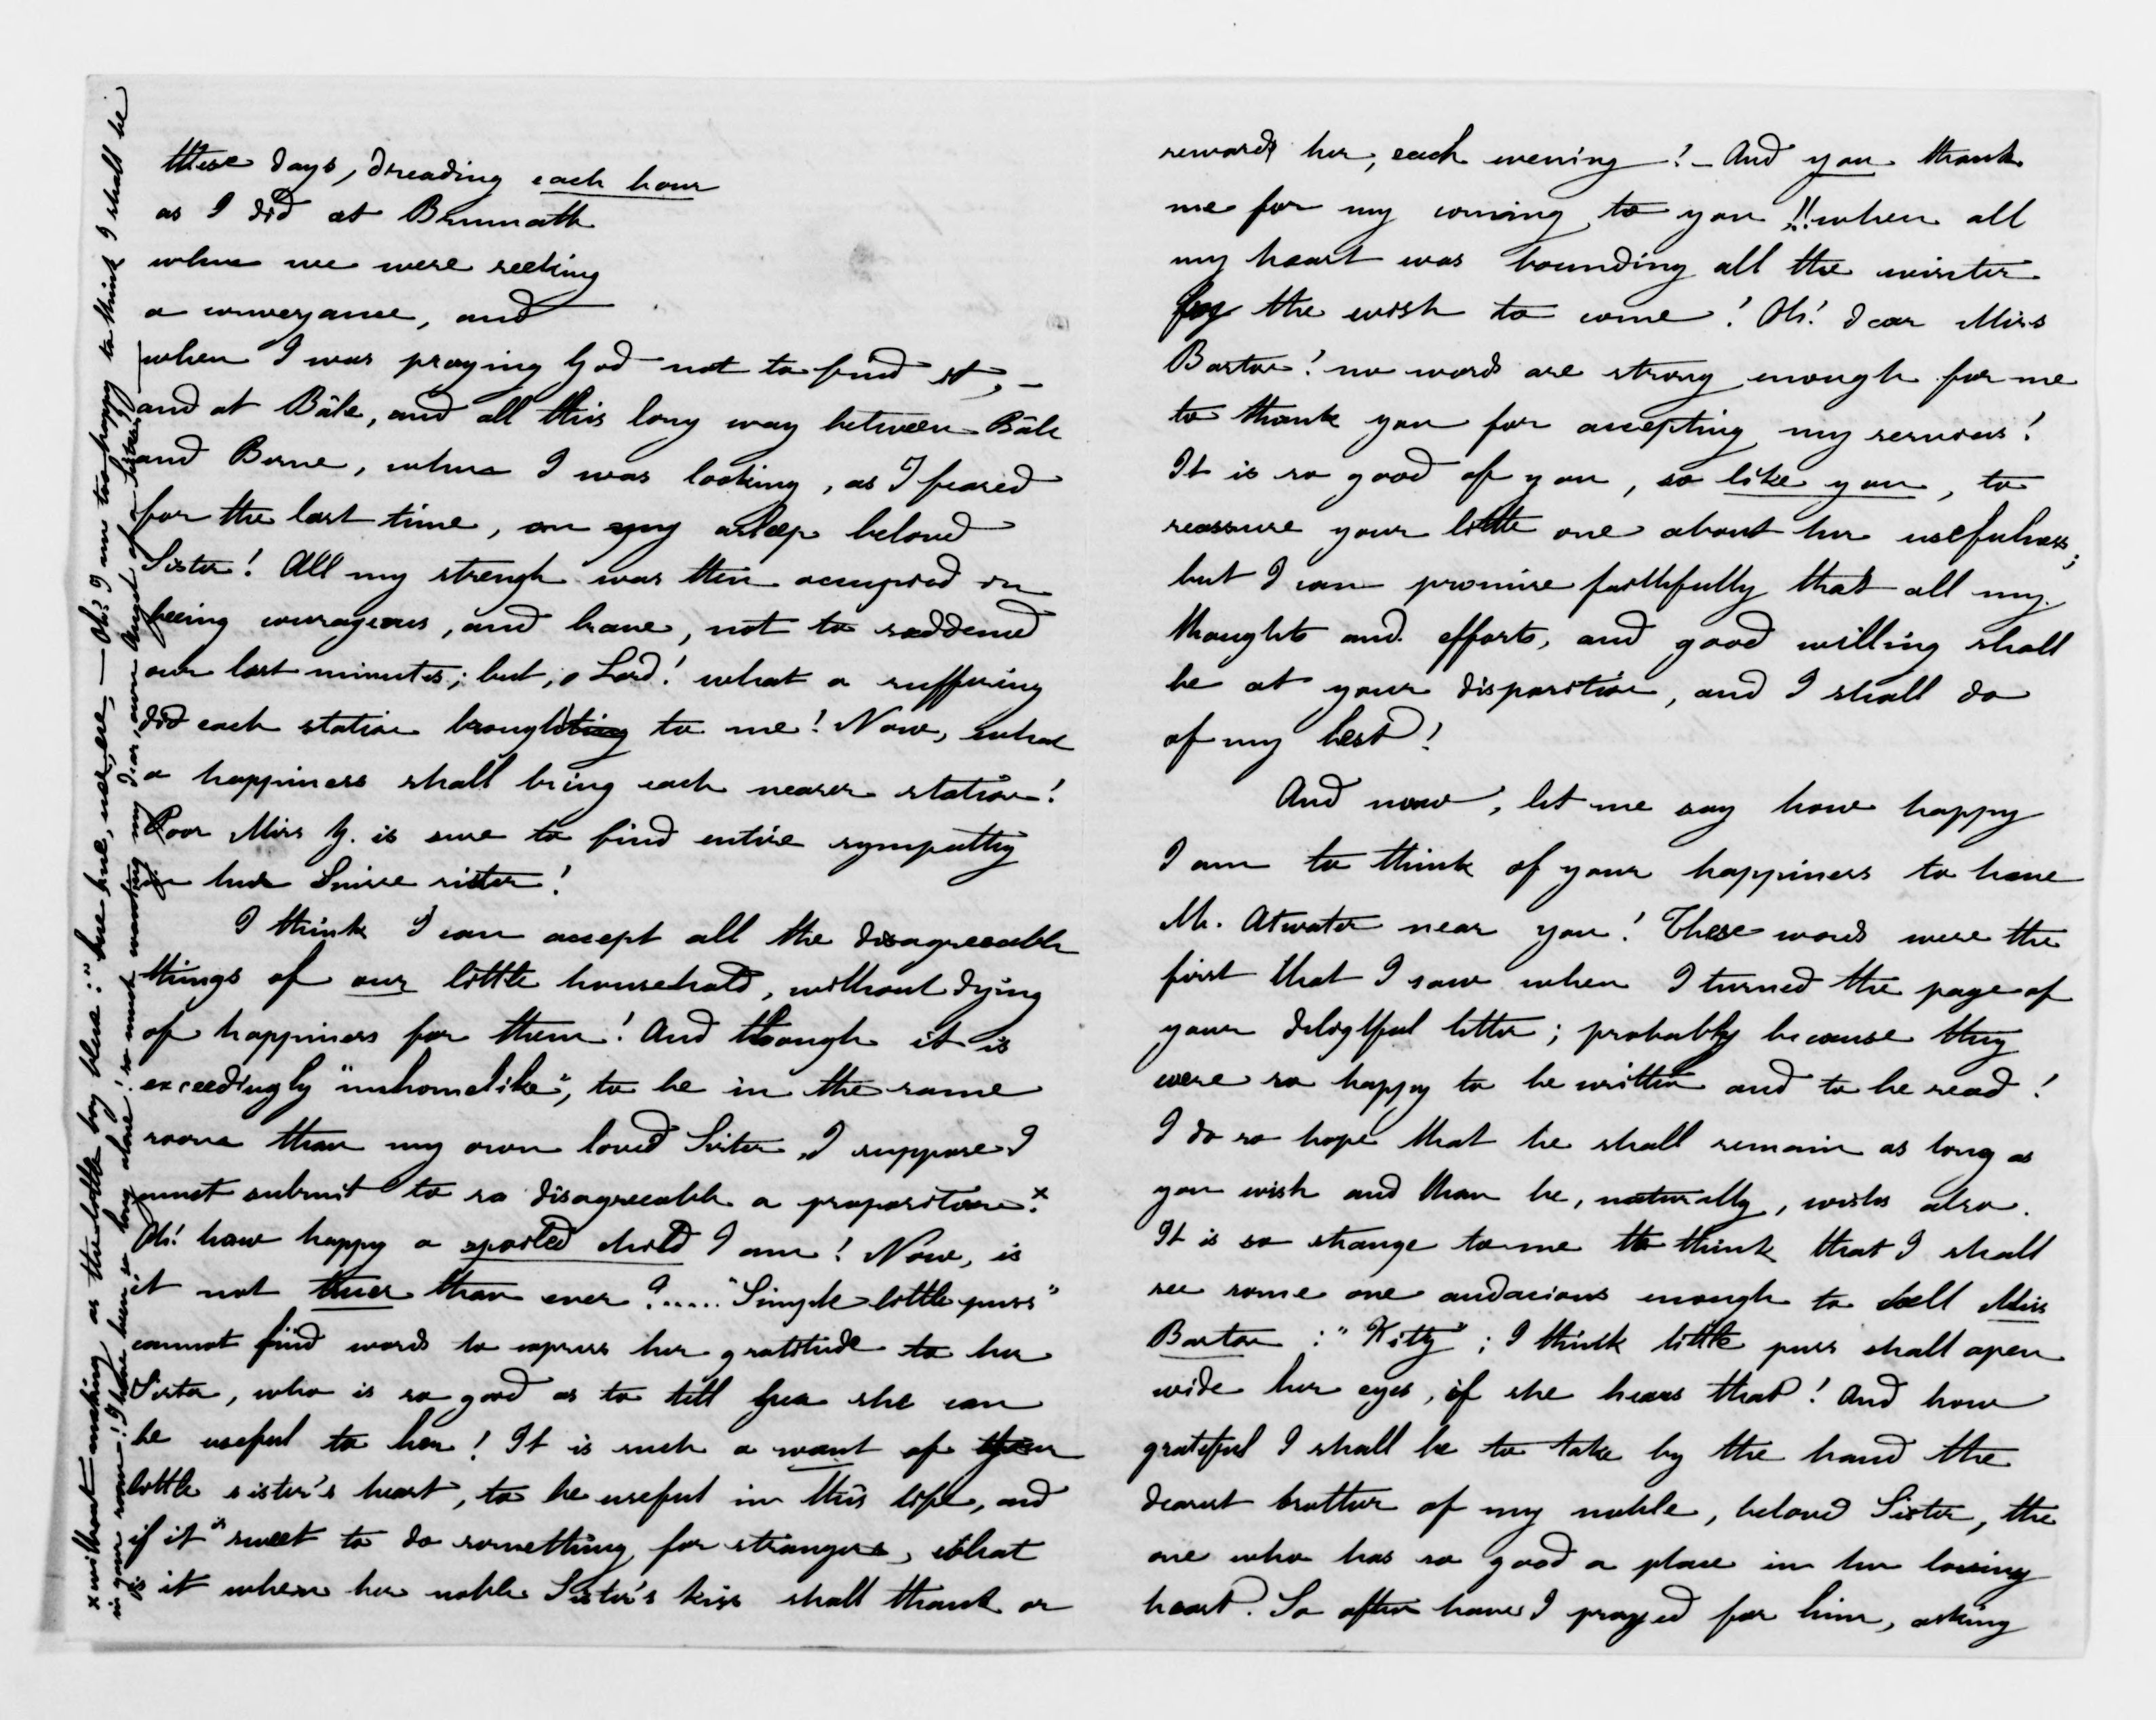 these days, dreading each hour
as I did at Brumath
when we were seeking
a conveyance, and
when I was praying God not to find it, –
and at Bâle, and all this long way between Bâle
and Berne, when I was looking, as I feared
for the last time, on my asleep beloved
Sister! All my strengh was then occupied in
being courageous, and brave, not to saddened
our last minutes; but, o Lord! what a suffering
did each station brought to me! Now, what
a happiness shall bring each nearer station!
Poor Miss G. is sure to find entire sympathy
in her Suisse sister!
I think I can accept all the disagreeable
things of our little household, without dying
of happiness for them! And though it is
exceedingly "unhomelike", to be in the same
room than my own loved Sister, I suppose I
must submit to so disagreeable a proposition.x
Oh! how happy a spoiled child I am! Now, is
it not truer than ever?..... "Simple little puss"
cannot find words to express her gratitude to her
Sister, who is so good as to tell her she can
be useful to her! It is such a want of
little sister's heart, to be useful in this life, and
if it is sweet to do something for strangers, what
is it when her noble Sister's kiss shall thank or
x without making as the little boy there: "hue, hue, hue, ere, – Oh! I am too happy to think I shall be
in your room! I have been so long alone! so much wanting my dear, own Angel of a Sister!
rewards her, each evening! – And you thank
me for my coming to you!! when all
my heart was bounding all the winter
by the wish to come! Oh! dear Miss
Barton! no words are strong enough for me
to thank you for accepting my services!
It is so good of you, so like you, to
reassure your little one about her usefulness;
but I can promise faithfully that all my
thoughts and efforts, and good willing shall
be at your disposition, and I shall do
of my best!
And now, let me say how happy
I am to think of your happiness to have
Mr. Atwater near you! These words were the
first that I saw when I turned the page of
your deligtful letter; probably because they
were so happy to be written and to be read!
I do so hope that he shall remain as long as
you wish and than he, naturally, wishes also.
It is so strange to me to think that I shall
see some one audacious enough to call Miss
Barton: "Kitty"; I think little puss shall open
wide her eyes, if she hears that! And how
grateful I shall be to take by the hand the
dearest brother of my noble, beloved Sister, the
one who has so good a place in her loving
heart. So often have I prayed for him, asking